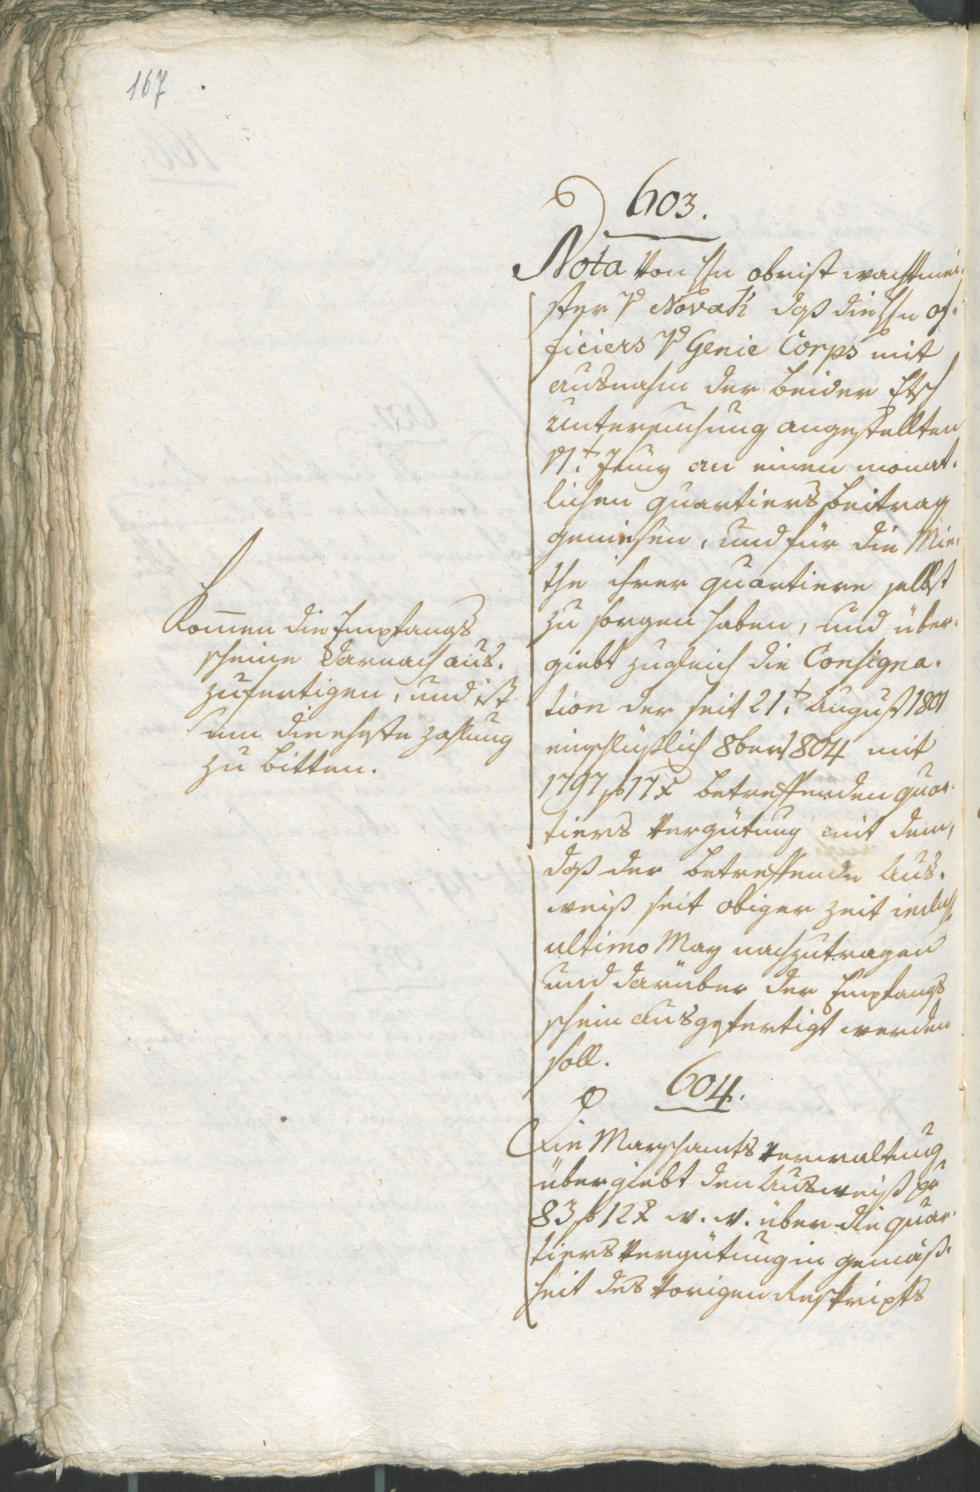 167
603.
Nota von Hn obrist wachtmei-
ster v Novak daß die Hn of-
ficiers v Genie Corps mit
ausnahm der beider Etsch
untersuchung angestellten
1t Juny an einen monat-
lichen quartiers beitrag
geniesen, und für die Mie-
the ihrer quartiere selbst
zu sorgen haben, und über-
giebt zugleich die Consigna-
tion der seit 21t August 1801
einschlüßlich 8ber 1804 mit
1797 f 17 x betreffenden quar-
tiers vergütung mit dem,
daß der betreffende Aus-
weiß seit obiger zeit inclus.
ultimo May nachzutragen
und darüber der Empfangs
schein ausgefertigt werden
soll.
Komen die Empfangs
scheine darnach aus-
zufertigen, und ist
um die ehste zahlung
zu bitten.
604.
Die Marschamts verwaltung
übergiebt den Ausweiß pr
83 f 12 x w. w. über die quar-
tiers vergütung in gemäß-
heit des vorigen rescripts